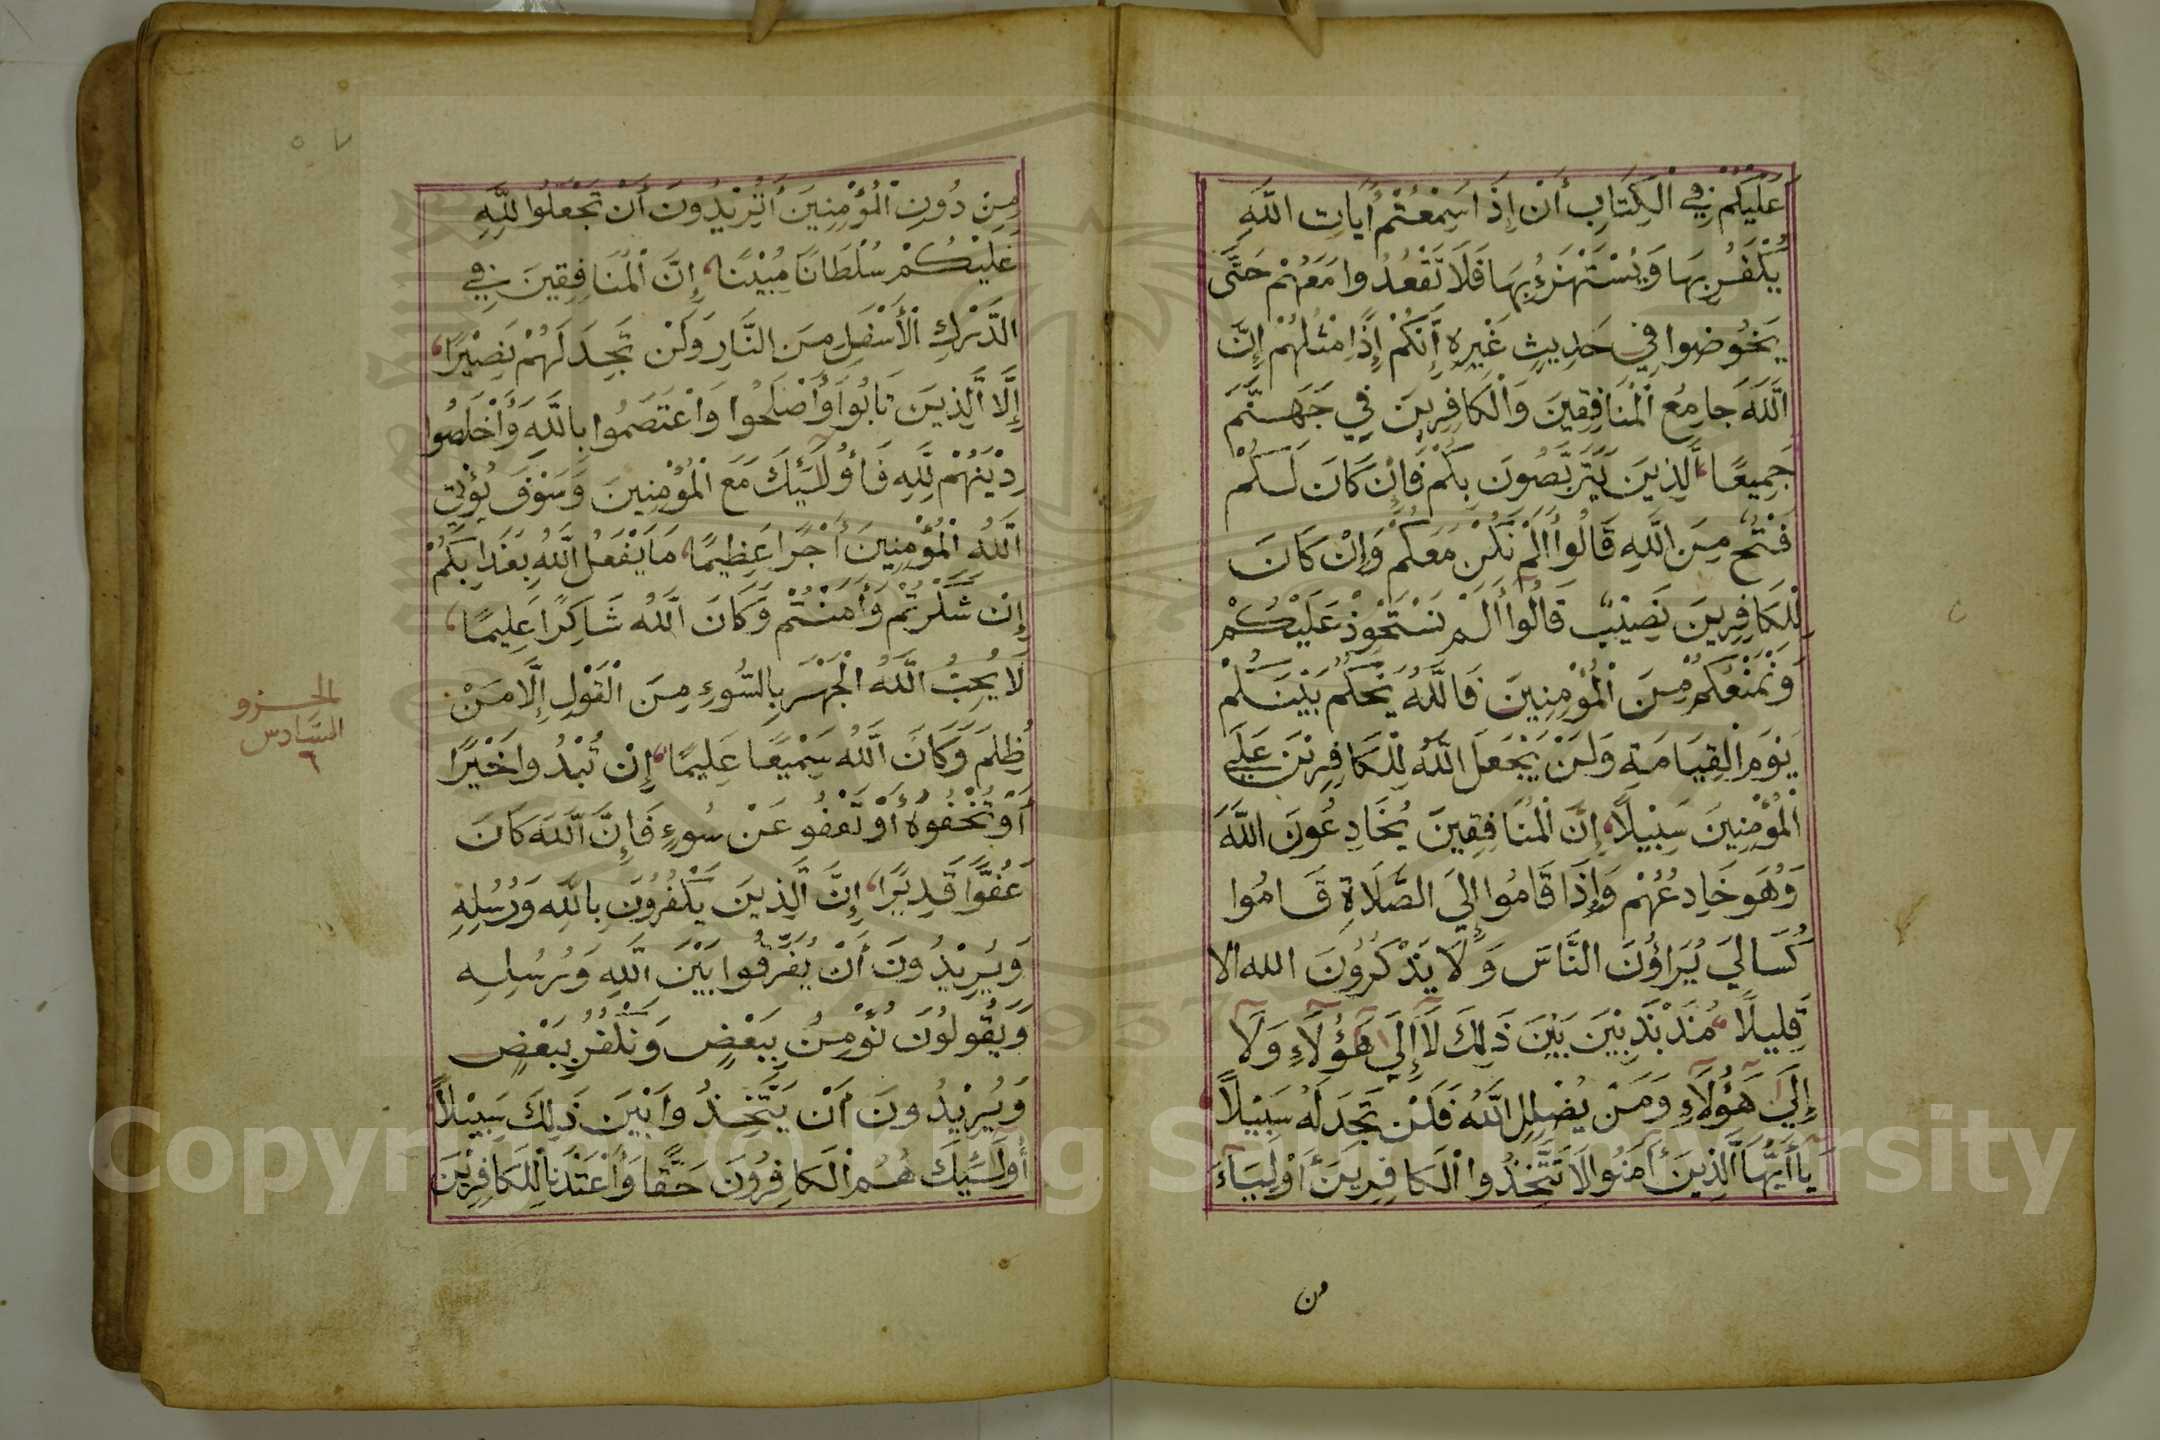 عَلَيْكُمْ فِي الْكِتَابِ أَنْ إِذَا سَمِعْتُمْ أَيَاتِ اللَّهِ
يُكْفَرُ بِهَا وَيُسْتَهْزَءُ بِهَا فَلَا تَقْعُدُوا مَعَهُمْ حَتَّى
يَخُوضُوا فِي حَدِيثٍ غَيْرِهِ إِنَّكُمْ إِذًا مِثْلُهُمْ إِنَّ
اللَّهَ جَامِعُ الْمُنَافِقِينَ وَالْكَافِرِينَ فِي جَهَنَّمَ
جَمِيعًا الَّذِينَ يَتَرَبَّصُونَ بِكُمْ فَإِنْ كَانَ لَكُمْ
فَتْحٌ مِنَ اللَّهِ قَالُوا أَلَمْ نَكُنْ مَعَكُمْ وَإِنْ كَانَ
لِلْكَافِرِينَ نَصِيبٌ قَالُوا أَلَمْ نَسْتَحْوِذْ عَلَيْكُمْ
وَنَمْنَعْكُمْ مِنَ الْمُؤْمِنِينَ فَاللَّهُ يَحْكُمُ بَيْنَكُمْ
يَوْمَ الْقِيَامَةِ وَلَنْ يَجْعَلَ اللَّهُ لِلْكَافِرِينَ عَلَى
الْمُؤْمِنِينَ سَبِيلًا إِنَّ الْمُنَافِقِينَ يُخَادِعُونَ اللَّهَ
وَهُوَ خَادِعُهُمْ وَإِذَا قَامُوا إِلَى الصَّلَاةِ قَامُوا
كُسَالَى يُرَاؤُنَ النَّاسَ وَلَا يَذْكُرُونَ الله الا
قَلِيلًا مُذَبْذَبِينَ بَيْنَ ذَلِكَ لَا إِلَى هَؤُلَاءِ وَلَا
إِلَى هَؤُلَاءِ وَمَنْ يُضْلِلِ اللَّهُ فَلَنْ تَجِدَ لَهُ سَبِيلًا
يَا أَيُّهَا الَّذِينَ أَمَنُوا لَا تَتَّخِذُوا الْكَافِرِينَ أَوْلِيَاءَ
من
٥٧
مِنْ دُونِ الْمُؤْمِنِينَ أَتُرِيدُونَ أَنْ تَجْعَلُوا لِلَّهِ
عَلَيْكُمْ سُلْطَانًا مُبِيْنًا إِنَّ الْمُنَافِقِينَ فِي
الدَّرْكِ الْأَسْفَلِ مِنَ النَّارِ وَلَنْ تَجِدَ لَهُمْ نَصِيْرًا
إِلَّا الَّذِينَ تَابُوا وَأَصْلَحُوا وَاعْتَصَمُوا بِاللَّهِ وَأَخْلَصُوا
دِيْنَهُمْ لِلَّهِ فَأُولَئِكَ مَعَ الْمُؤْمِنِينَ وَسَوْفَ يُؤْتِي
اللَّهُ الْمُؤْمِنِينَ أَجْرًا عَظِيمًا مَا يَفْعَلُ اللَّهُ بِعَذَابِكُمْ
إِنْ شَكَرْتُمْ وَأَمَنْتُمْ وَكَانَ اللَّهُ شَاكِرًا عَلِيمًا
لَا يُحِبُّ اللَّهُ الْجَهْرَ بِالسُّوءِ مِنَ الْقَوْلِ إِلَّا مَنْ
ظُلِمَ وَكَانَ اللَّهُ سَمِيْعًا عَلِيمًا إِنْ تُبْدُوا خَيْرًا
أَوْ تُخْفُوهُ أَوْ تَعْفُو عَنْ سُوءٍ فَإِنَّ اللَّهَ كَانَ
عَفُوًّا قَدِيرًا إِنَّ الَّذِينَ يَكْفُرُونَ بِاللَّهِ وَرُسُلِهِ
وَيُرِيْدُونَ أَنْ يُفَرِّقُوا بَيْنَ اللَّهِ وَرُسُلِهِ
وَيَقُولُونَ نُؤْمِنُ بِبَعْضٍ وَنَكْفُرُ بِبَعْضٍ
وَيُرِيْدُونَ أَنْ يَتَّخِذُوا بَيْنَ ذَلِكَ سَبِيْلًا
أُولَئِكَ هُمُ الْكَافِرُونَ حَقًّا وَأَعْتَدْنَا لِلْكَافِرِيْنَ
الجزو
السَّادس
٦
Copyright © King Saud University
1957